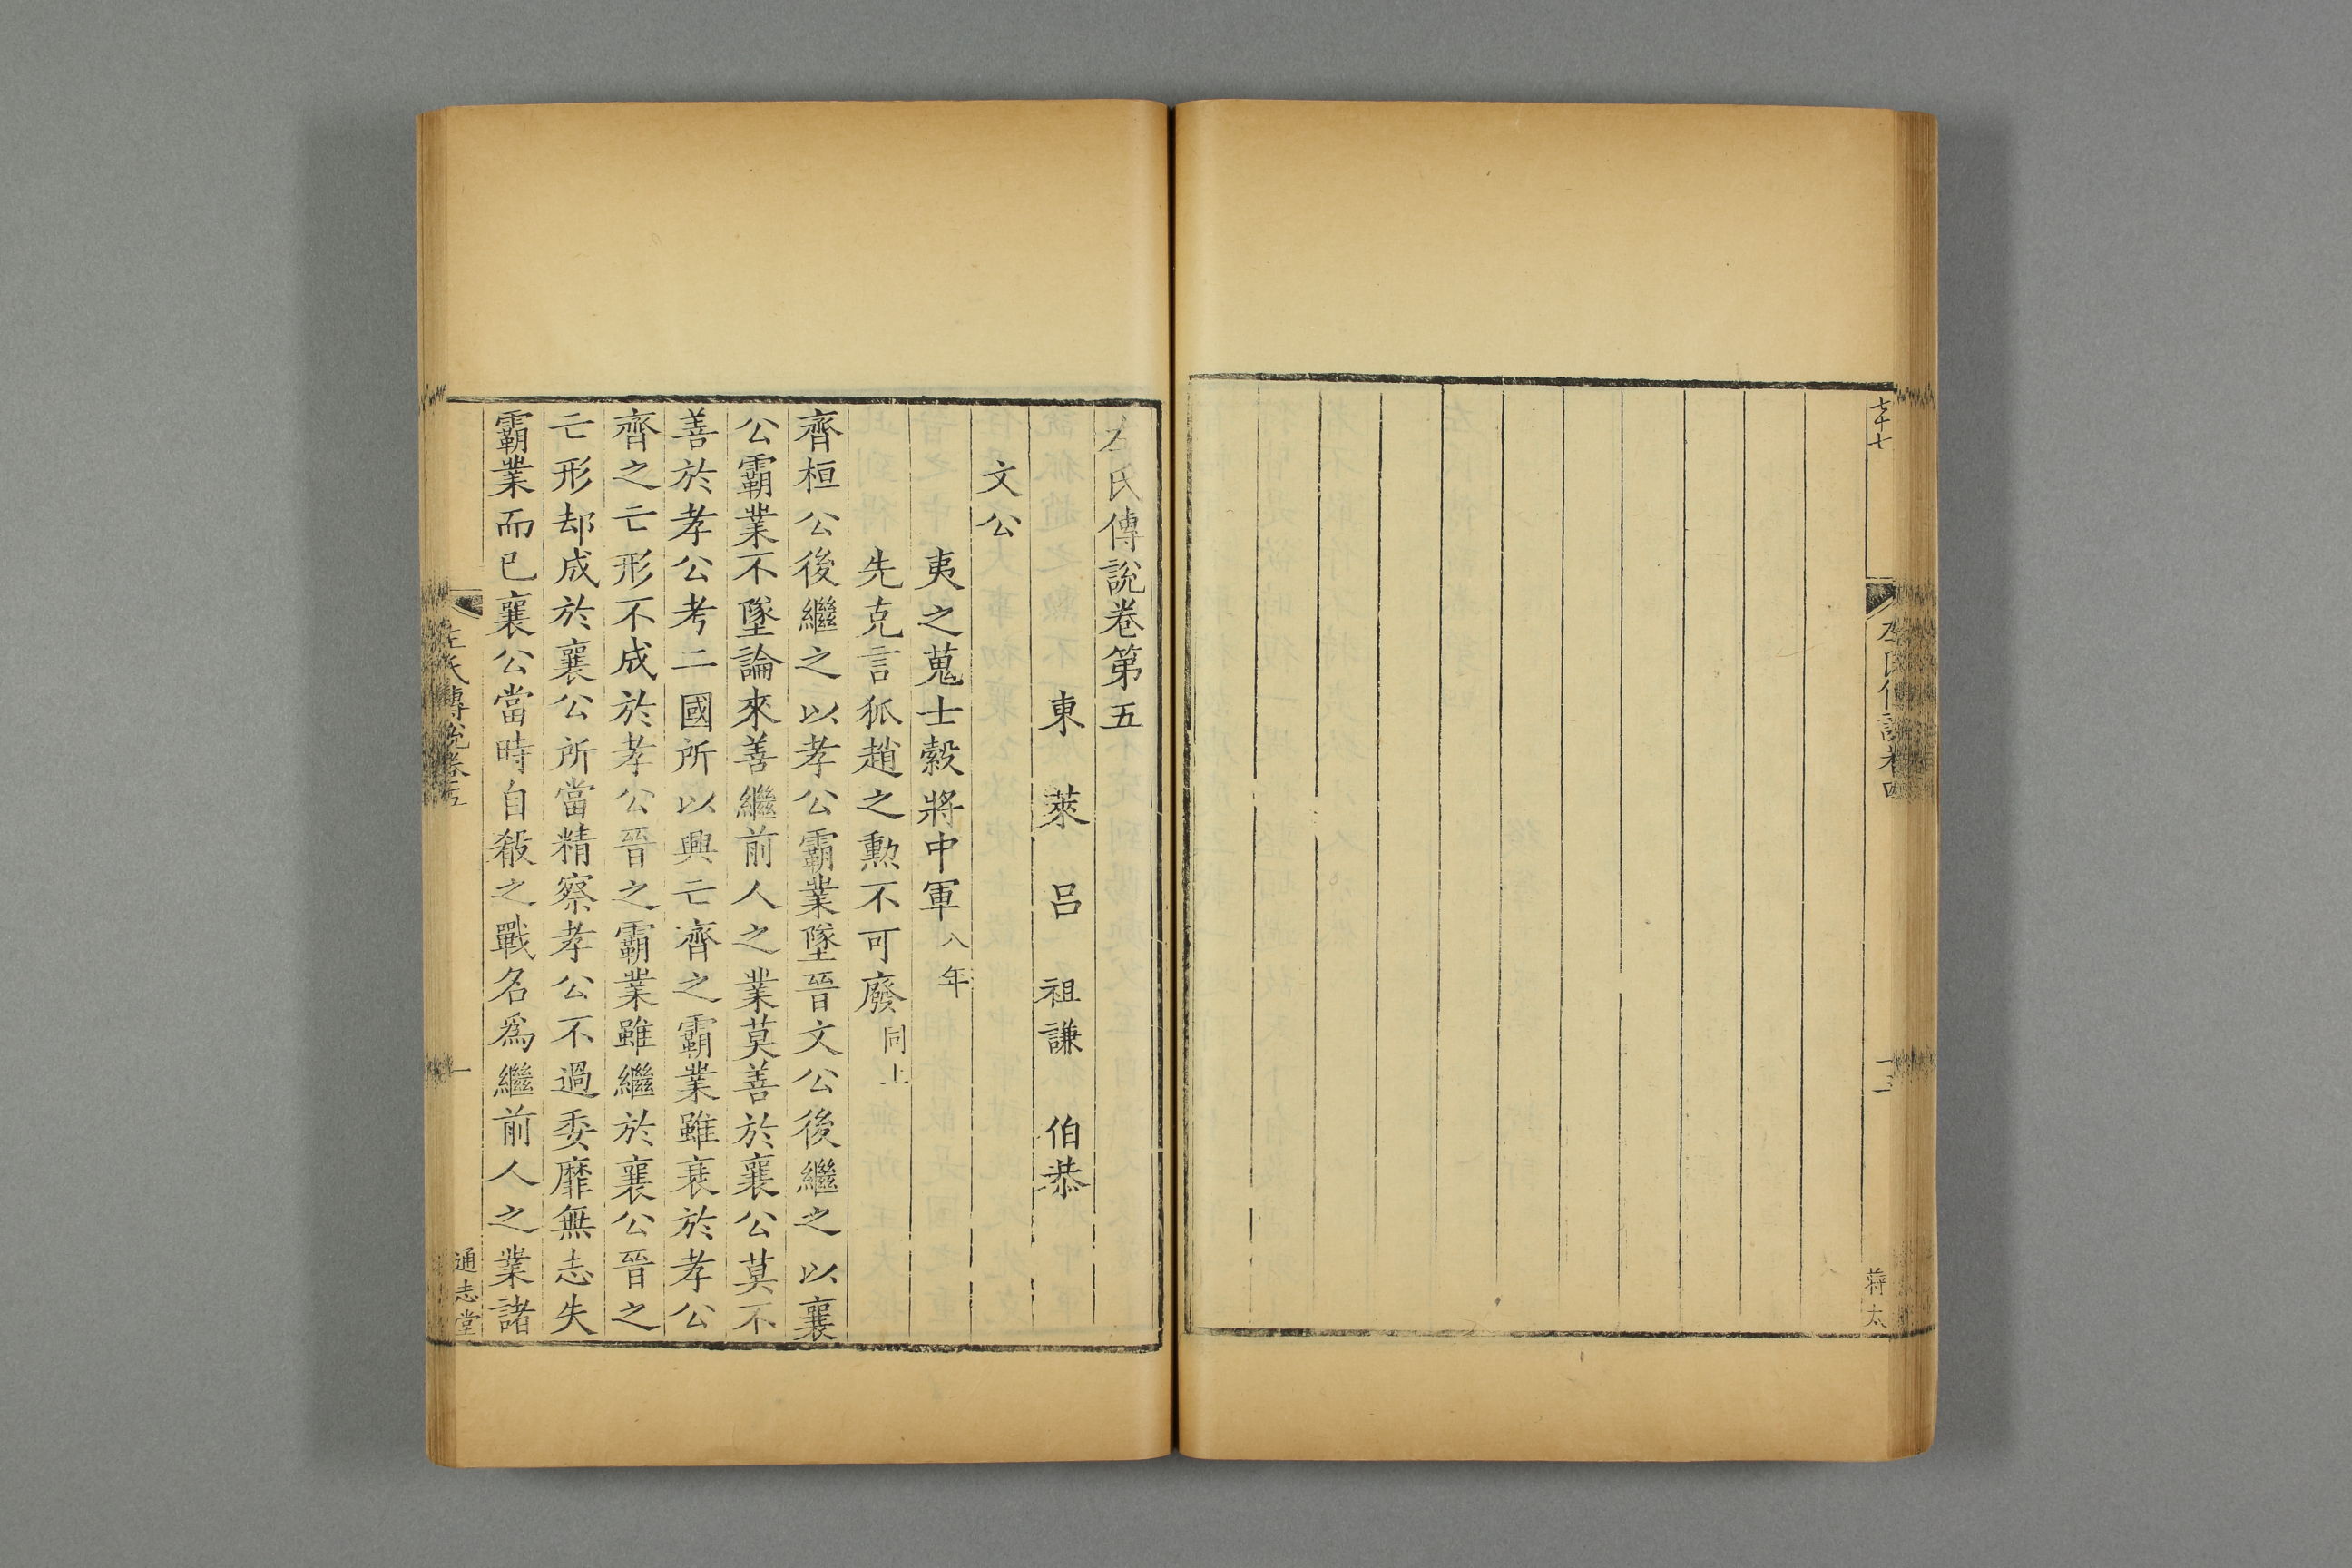 左氏傳說卷四
十二
蔣太
左氏傳說卷第五
東萊呂祖謙伯恭
文公
夷之蒐士縠將中軍八年
先克言狐趙之勲不可廢同上
齊桓公後繼之以孝公霸業墜晉文公後繼之以襄
公霸業不墜論來善繼前人之業莫善於襄公莫不
善於孝公考二國所以興亡齊之霸業雖衰於孝公
齊之亡形不成於孝公晉之霸業雖繼於襄公晉之
亡形却成於襄公所當精察孝公不過委靡無志失
霸業而已襄公當時自殽之戰名爲繼前人之業諸
左氏傳說卷五
一
通志堂